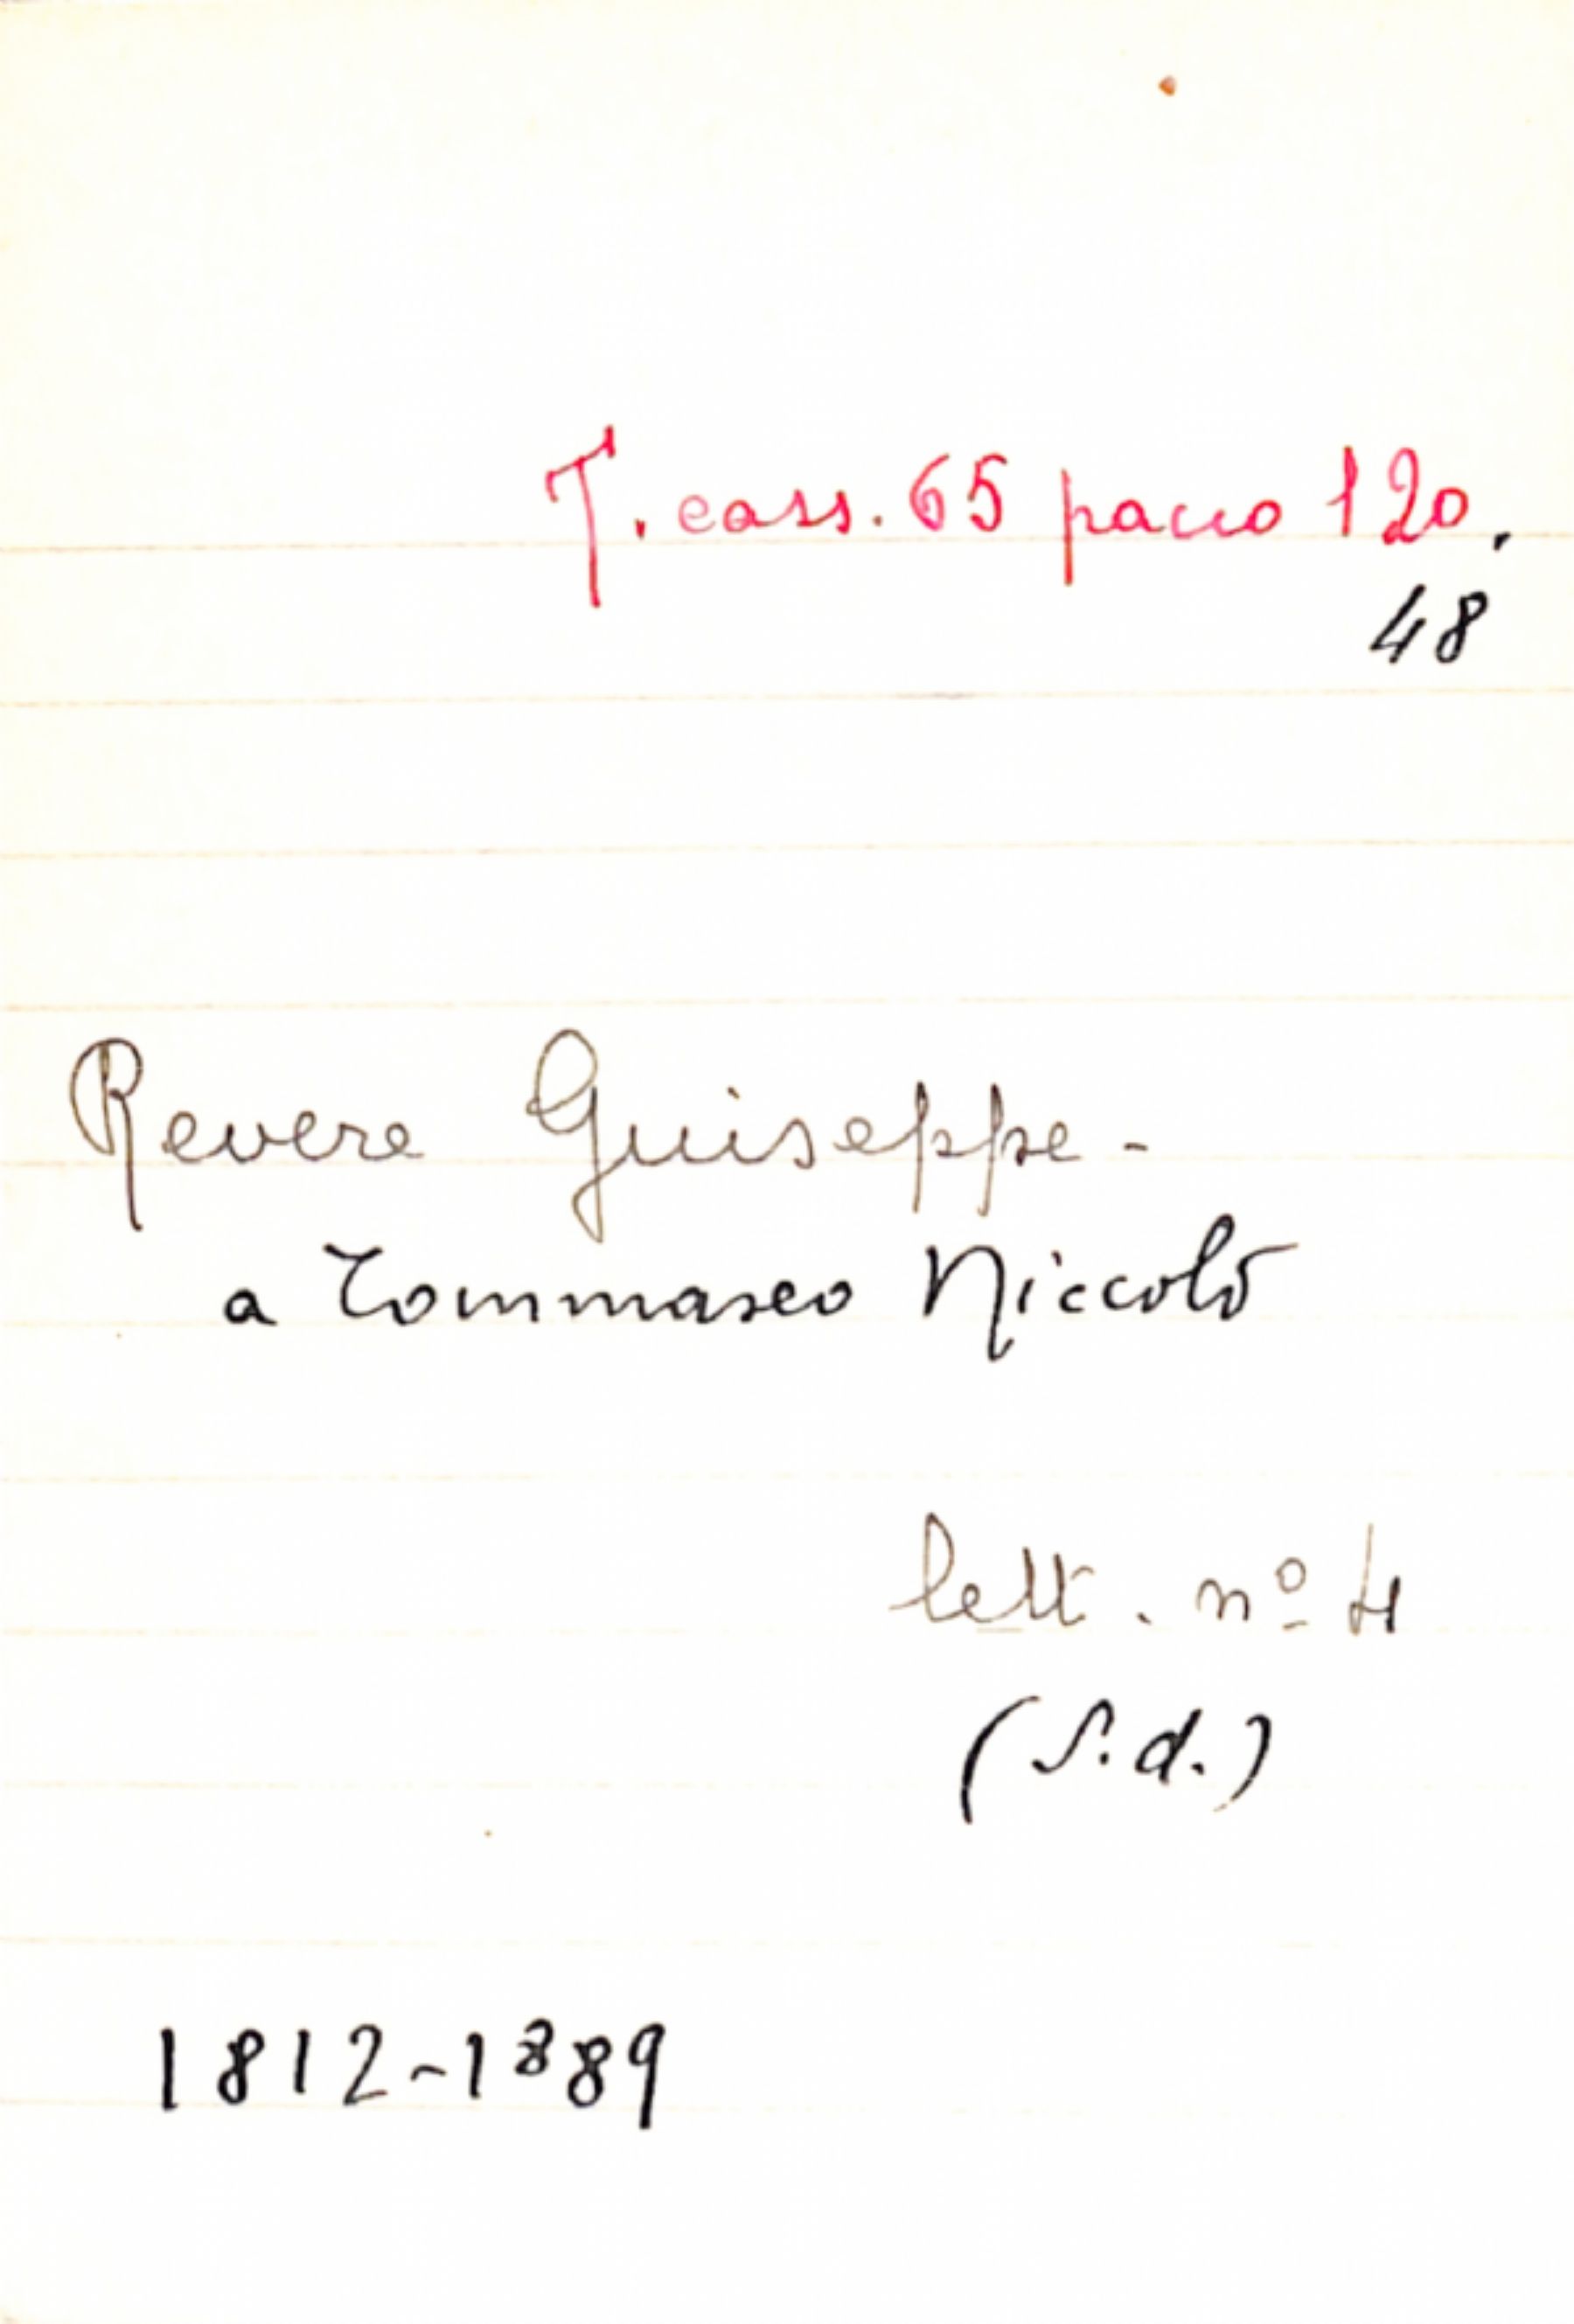 T. cass. 65 pacco 120.
48
Revere Giuseppe -
a Tommaseo Niccolò
lett. nº 4
(s.d.)
1812-1889